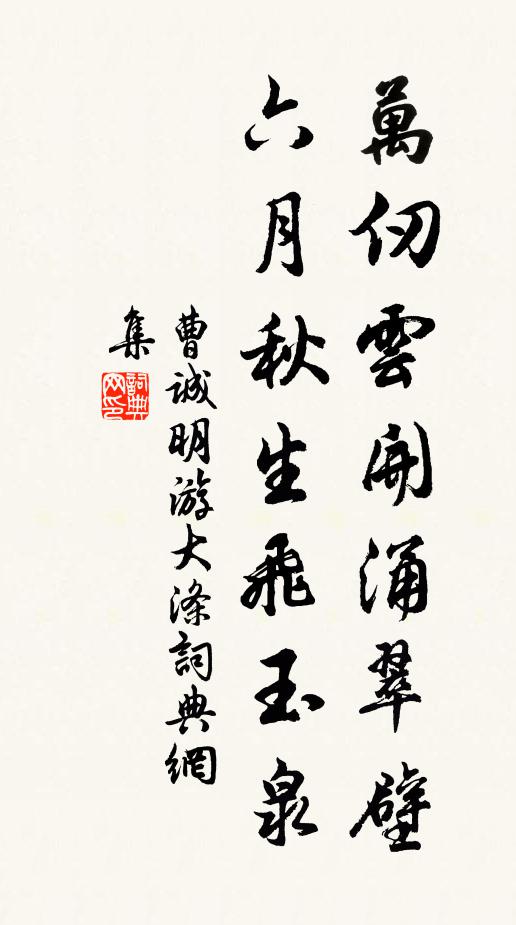 萬仞雲開涌翠壁
六月秋生飛玉泉
曹誠明游大滌詞典網
集
詞典网印